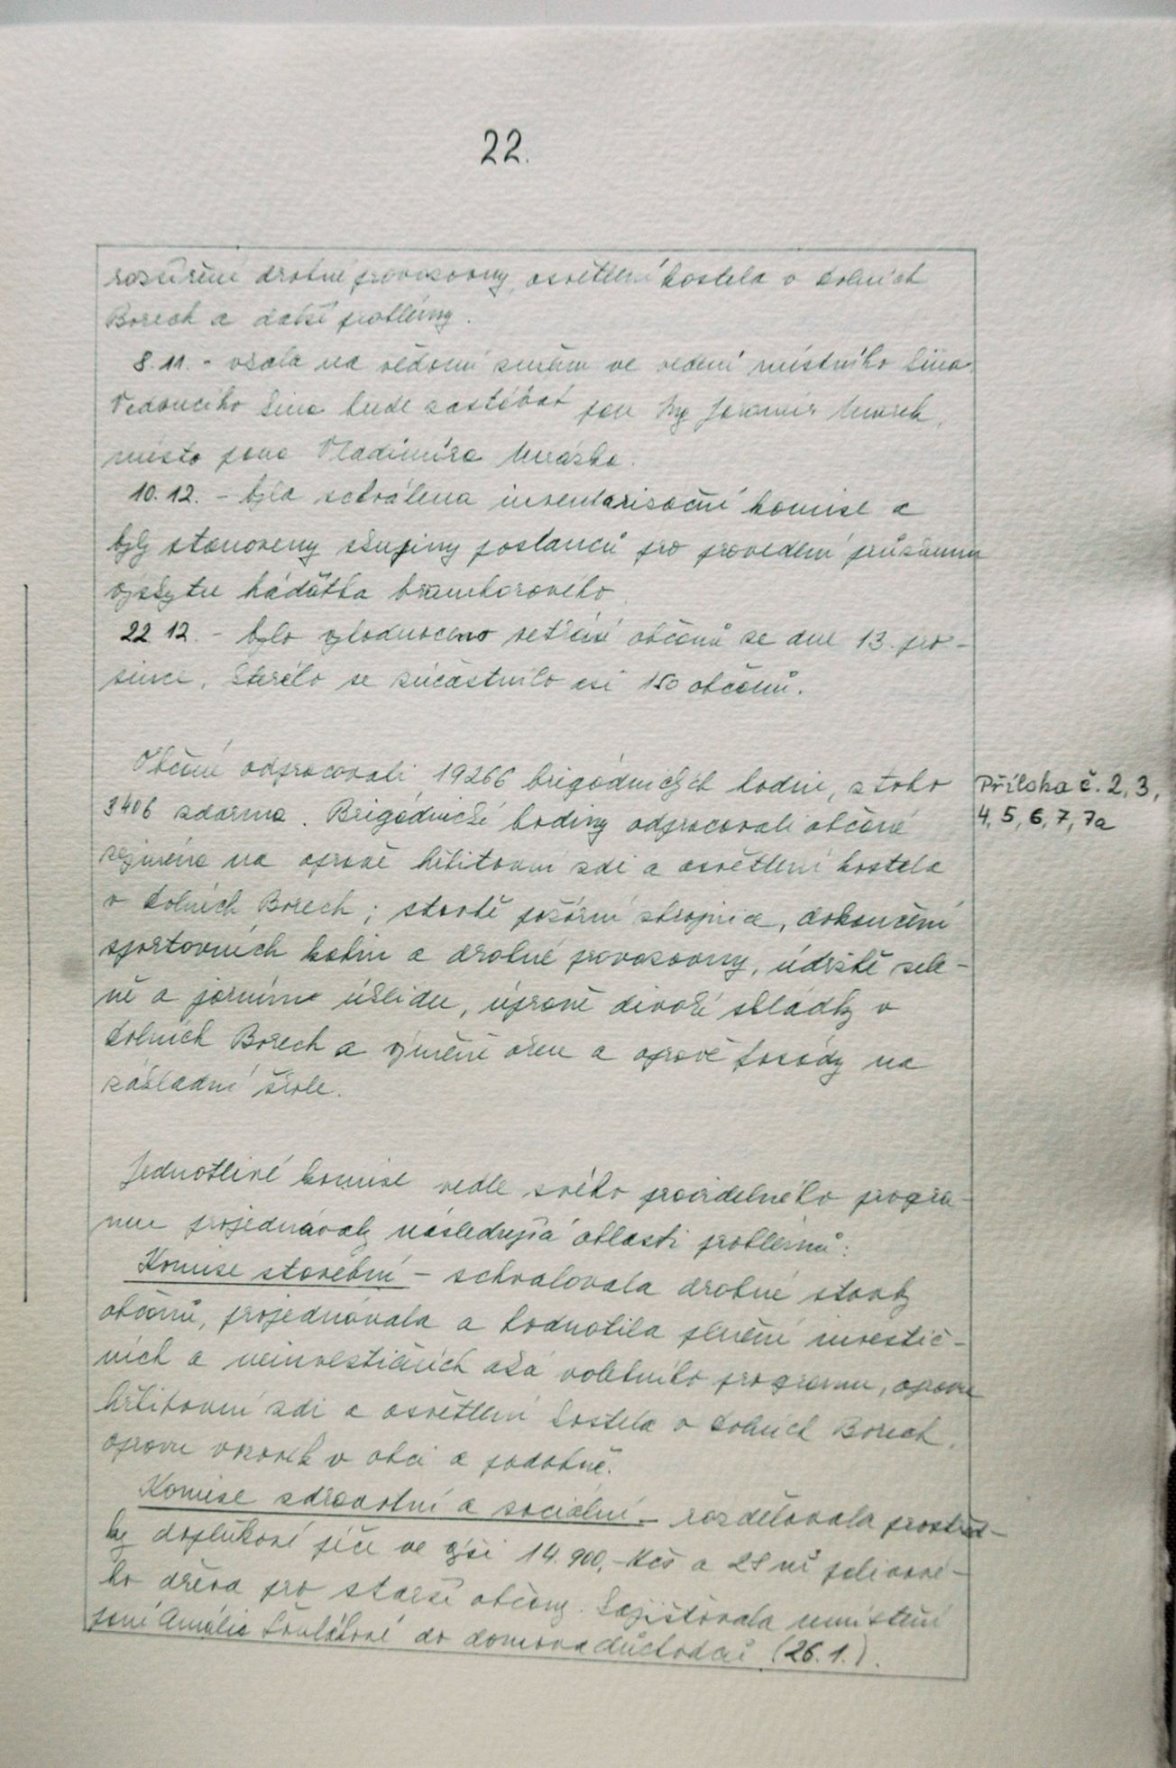 22.
rozšíření drobné provozovny, osvětlení kostela v Dolních
Borech a další problémy.
8.11. - vzala na vědomí změnu ve vedení místního kina.
Vedoucího kina bude zastávat pan Ing Jaromír
místo pana Vladimíra
10.12. - byla schválena inventarisační komise a
byly stanoveny skupiny poslanců pro provedení průzkumu
výskytu háďátka bramborového.
22 12. - bylo vyhodnoceno setkání občanů ze dne 13. pro-
since, kterého se zúčastnilo asi 150 občanů.
Občané odpracovali 19266 brigádnických hodin, z toho
3406 zdarma. Brigádnické hodiny odpracovali občané
zejména na opravě hřbitovní zdi a osvětlení kostela
v Dolních Borech; stavbě požární zbrojnice, dokončení
sportovních kabin a drobné provozovny, údržbě zele-
ně a jarnímu úklidu, úpravě divoké skládky v
Dolních Borech a výměně oken a opravě fasády na
základní škole.
Příloha č. 2, 3,
4, 5, 6, 7, 7a
Jednotlivé komise vedle svého pravidelného progra-
mu projednávaly následující oblasti problémů:
Komise stavební - schvalovala drobné stavby
občanů, projednávala a hodnotila plnění investič-
ních a neinvestičních akcí volebního programu, opravu
hřbitovní zdi a osvětlení kostela v Dolních Borech,
opravu vozovek v obci a podobně.
Komise zdravotní a sociální - rozdělovala prostřed-
ky doplňkové péče ve výši 14.900,- Kčs a 28 m³ palivové-
ho dřeva pro starší občany. Zajišťovala umístění
paní Amálie do domova důchodců (26.1.).